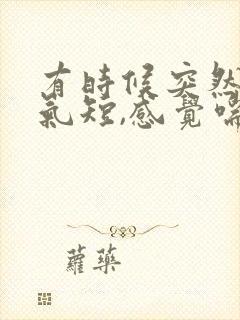 有時候突然
氣短,感覺喘
蘿藥